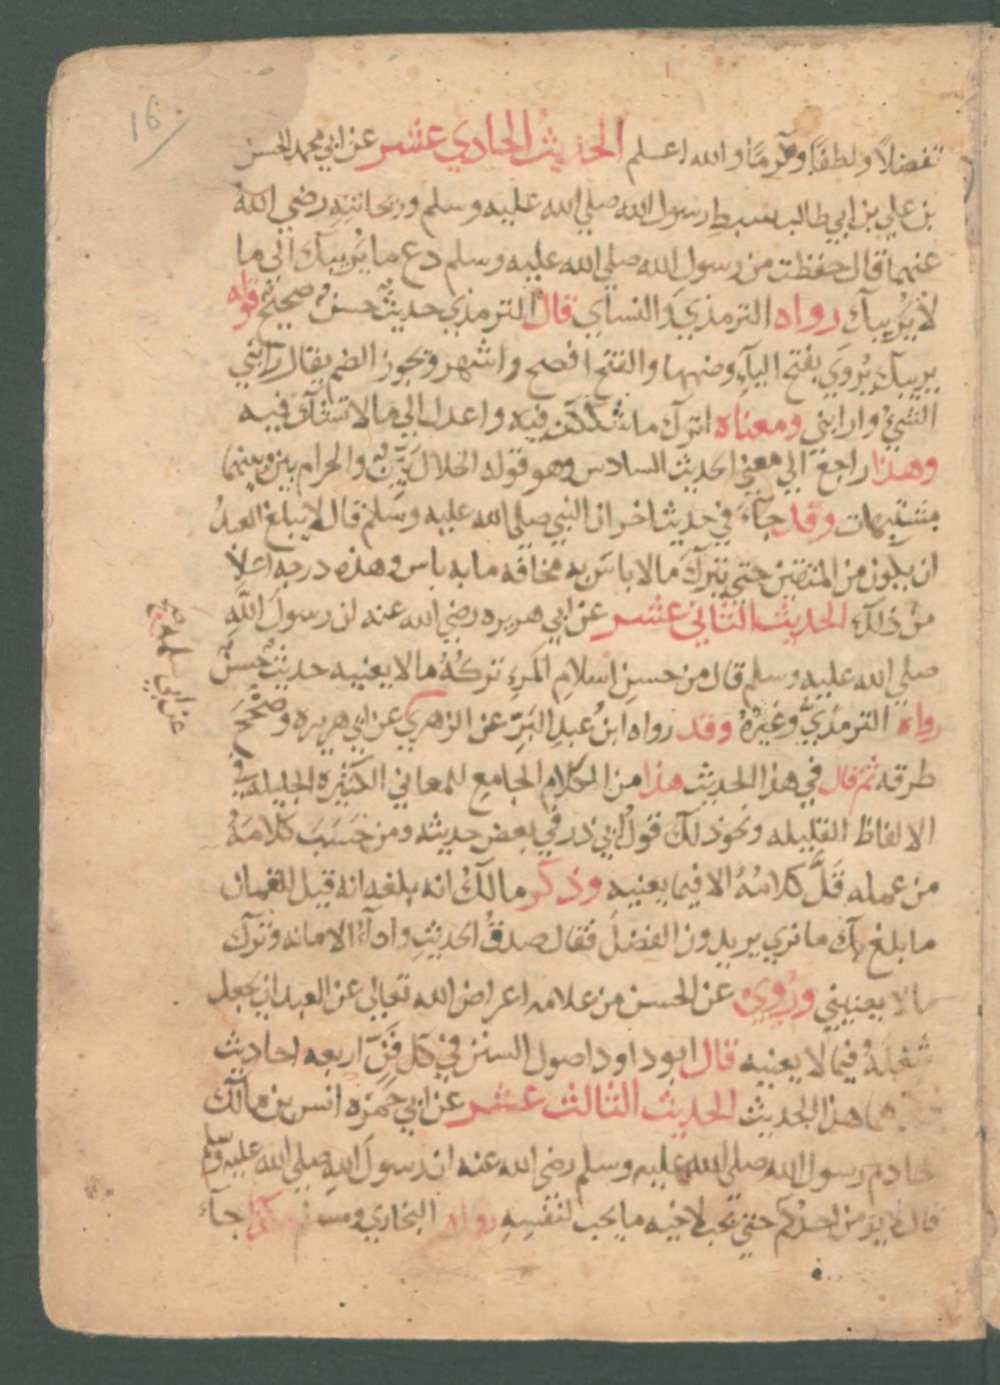 16
تفضلاً ولطفًا وكرمًا والله اعلم الحديث الحادي عشر عن ابي محمد الحسن
بن علي بن ابي طالب سبط رسول الله صلي الله عليه وسلم وريحانته رضي الله
عنهما قال حفظت من رسول الله صلي الله عليه وسلم دع ما يريبك الى ما
لا يريبك رواه الترمذي والنساي قال الترمذي حديث حسن صحيح قوله
يريبك يروي بفتح اليآء وضمها والفتح افصح واشهر ويجوز الضم يقال رابني
الشيء وارابني ومعناه اترك ما شككت فيه واعدل الي ما لا تشك فيه
وهذا راجع الي معني الحديث السادس وهو قوله الحلال بين والحرام بين وبينهما
مشتبهات وقد جآء في حديث اخر ان النبي صلي الله عليه وسلم قال لا يبلغ العبد
ان يكون من المتقين حتي يترك ما لا باس به مخافة ما به باس وهذه درجه اعلا
من ذلك الحديث الثاني عشر عن ابي هريره رضي الله عنه ان رسول الله
صلي الله عليه وسلم قال من حسن اسلام المرء تركه ما لا يعنيه حديث حسن
رواه الترمذي وغيره وقد رواه ابن عبد البر عن الزهري عن ابي هريره وصحح
طرقه ثم قال في هذا الحديث هذا من الكلام الجامع للمعاني الكثيره الجليله في
الالفاظ القليله ونحو ذلك قول ابي ذر في بعض حديثه ومن حسب كلامه
من عمله قل كلامه الا فيما يعنيه وذكر مالك انه بلغه انه قيل للقمان
ما بلغ بك ما نري يريدون الفضل فقال صدق الحديث واداء الامانه وترك
مالا يعنيني وروي عن الحسن من علامه اعراض الله تعالي عن العبد ان يجعل
شغله فيما لا يعنيه قال ابو داود اصول السنن في كل فن اربعه احاديث
هذا الحديث الحديث الثالث عشر عن ابي حمزه انس بن مالك
خادم رسول الله صلي الله عليه وسلم رضي الله عنه ان رسول الله صلي الله عليه وسلم
قال لا يومن احدكم حتي يحب لاخيه ما يحب لنفسه رواه البخاري ومسلم هكذا جآء
عن ابي سلمه صح